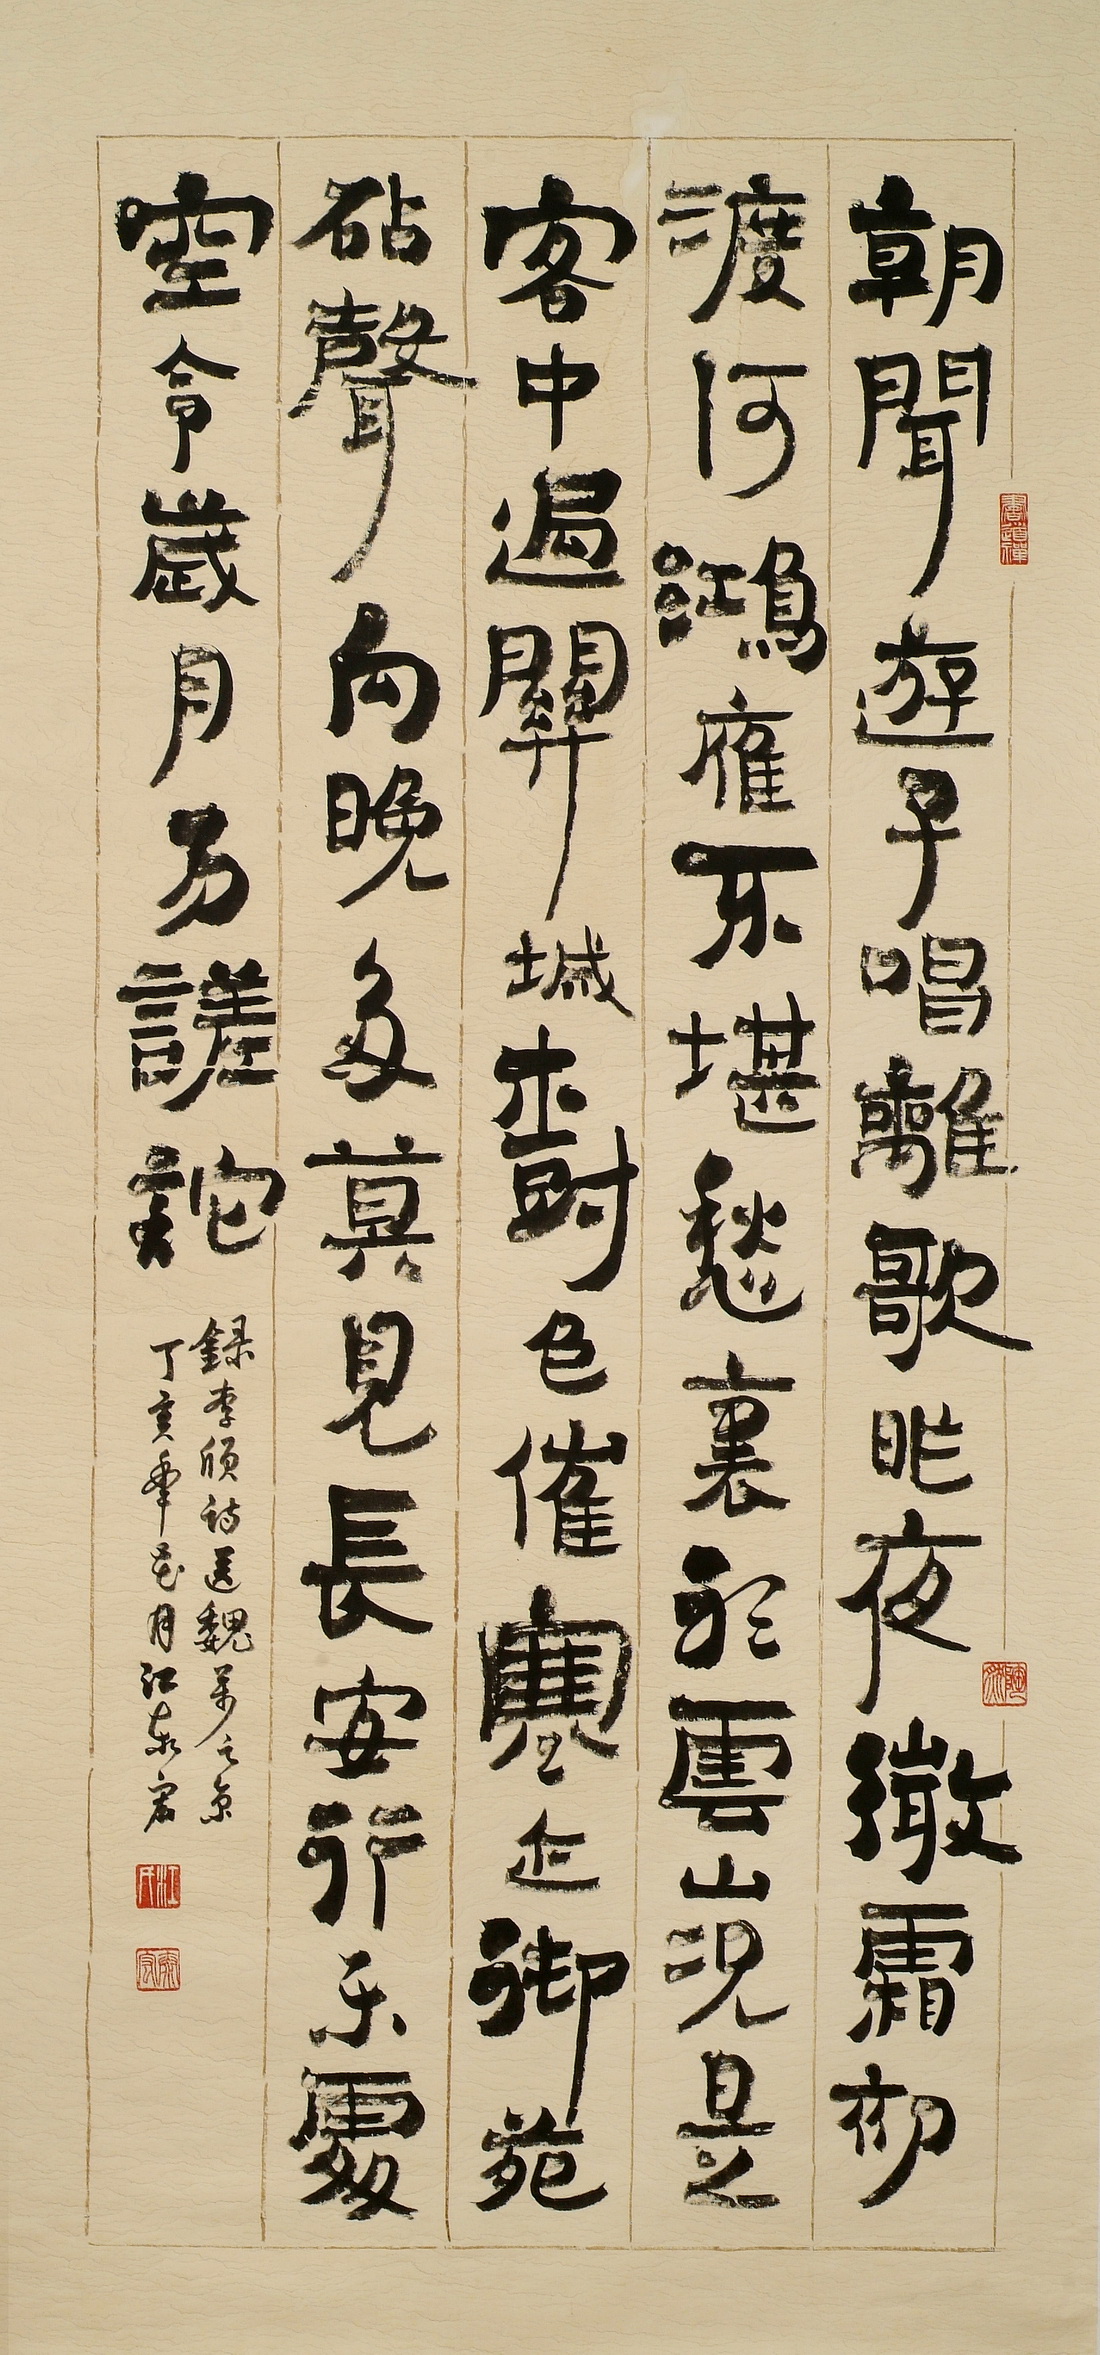 朝聞遊子唱離歌昨夜微霜初
渡河鴻雁不堪愁裏聽雲山況是
客中過關城樹色催寒近御苑
砧聲向晚多莫見長安行樂處
空令歲月易蹉跎
録李頎詩送魏万之京
丁亥年花月江泰宏
書道禪
江氏